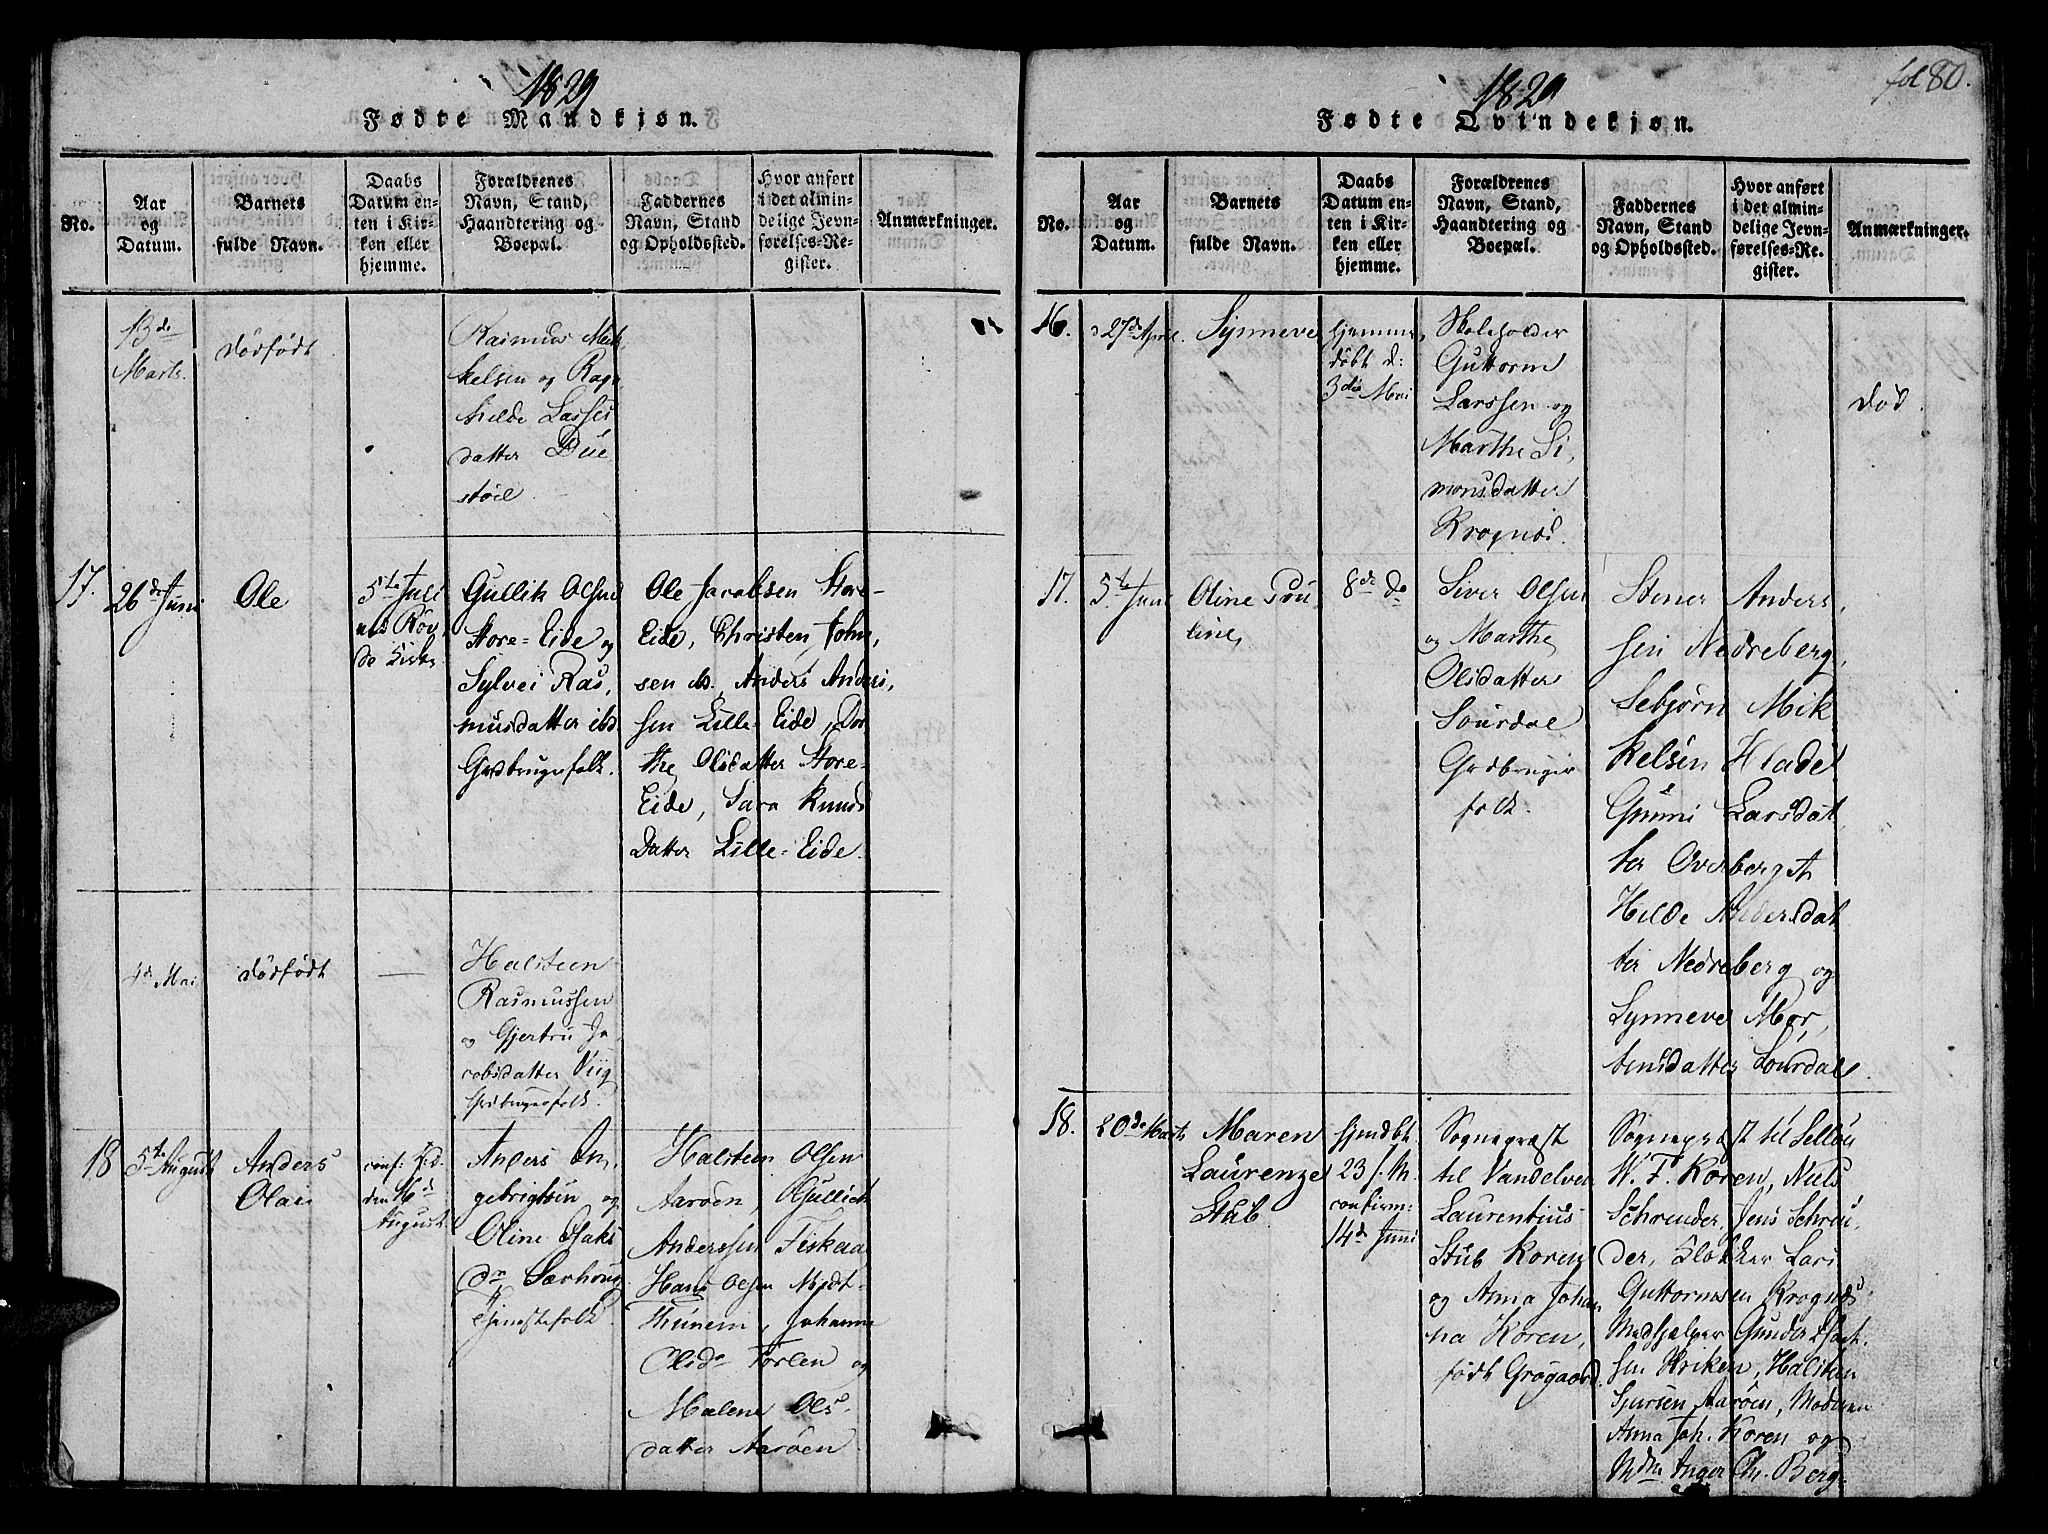 1829
Fødte Mandkjøn.
No.
Aar
og
Datum.
Barnets
fulde Navn.
Daabs
Datum en-
ten i Kir-
ken eller
hjemme.
Forældrenes
Navn, Stand,
Haandtering og
Boepæl.
Faddernes
Navn, Stand
og Opholdssted.
Hvor anført
i det almin-
delige Jevn-
førelses-Re-
gister.
Anmærkninger.
13de
Marts.
dødfødt
Rasmus Mik
kelsen og Rag
hilde Lasses
datter
støel
17.
26de Juni
Ole
5te Juli
Kirke
Gullik Olsen
Store-Eide og
Sylvei Ras,
musdatter ibd
Grdbrugefolk.
Ole Jacobsen Store-
Eide, Christen John,
sen ib., Anders Anders,
sen Lille-Eide, Dor
the Olsdatter Store-
Eide, Sara Knuds
Datter Lille-Eide.
Mai
dødfødt
—
Halsteen
Rasmussen
og Gjertru Ja,
cobsdatter
Grdbrugefolk.
18
5te August
Anders
Olai
conf:
den 16d
August.
Anders In,
gebrigtsen og
Oline Isaks
dr
Tjenestefolk.
Halsteen Olsen
Aarøen, Gullich
Anderssen Fiskaa
Hans Olsen Midt-
Thunem, Johanne
Olsdr Forlen og
Malene Ols
datter Aarøen
1829
fol 80.
Fødte Qvindekjøn.
No.
Aar
og
Datum.
Barnets
fulde Navn.
Daabs
Datum en-
ten i Kir-
ken eller
hjemme.
Forældrenes
Navn, Stand,
Haandtering og
Boepæl.
Faddernes
Navn, Stand
og Opholdssted.
Hvor anført
i det almin-
delige Jevn-
førelses-Re-
gister.
Anmærkninger.
16.
27de April.
Synneve
hjemme,
døbt d:
3die Mai
Skoleholder
Guttorm
Larssen og
Marthe Si,
monsdatter
Krognæs.
død.
17.
5te Juni
Oline Pou,
line,
8de do
Siver Olsen
og Marthe
Olsdatter
Sourdal
Grdbruger
folk.
Stener Anders,
sen Nedreberg,
Sebjørn Mik
kelsen Hlade
Gunni Larsdat
ter Overberget
Hilde Andersdat
ter Nedreberg og
Synneve Mor,
tensdatter Sourdal
18.
20de Marts
Maren
Laurenze
Stub
hjemdbt
23 s. M.
confirm:
14d Juni
Sognepræst
til Vandelven
Laurentius
Stub Koren
og Anna Johan
na Koren,
født Grøgaard.
Sognepræst til Selløu
W. F. Koren, Niels
Schreuder, Jens Schreu,
der, Klokker Lars
Guttormsen Krognæs
Medhjelper Gunder
sen Kriken, Halsten
Sjursen Aarøen, Moderen
Anna Joh. Koren og
Mdme Inger Ch. Berg